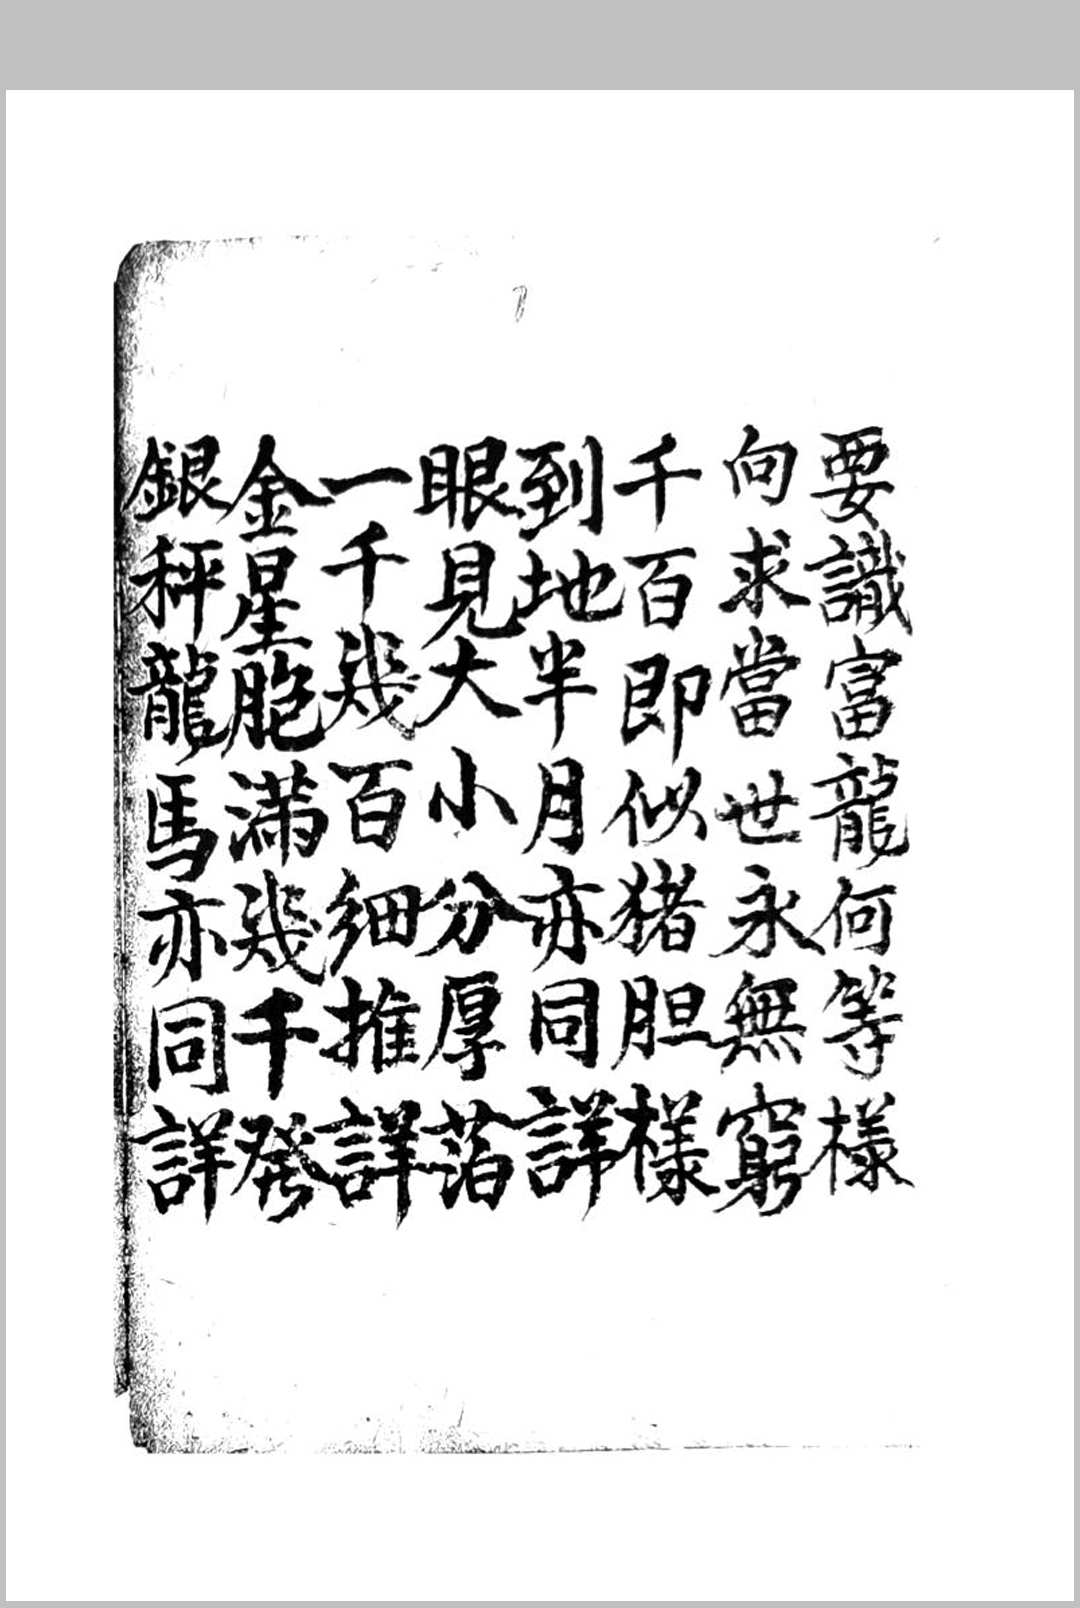 要識富龍何等樣
向求當世永無窮
千百即似猪胆樣
到地半月亦同詳
眼見大小分厚萡
一千幾百細推詳
金星胞滿幾千發
銀秤龍馬亦同詳